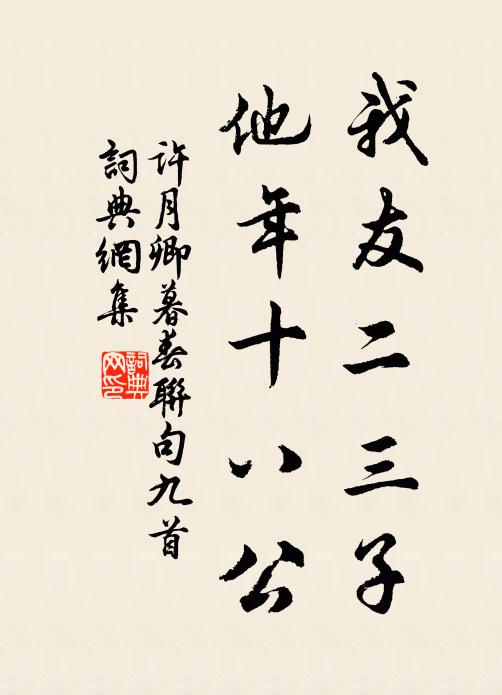 我友二三子
他年十八公
許月卿暮春聯句九首
詞典網集
詞典网印